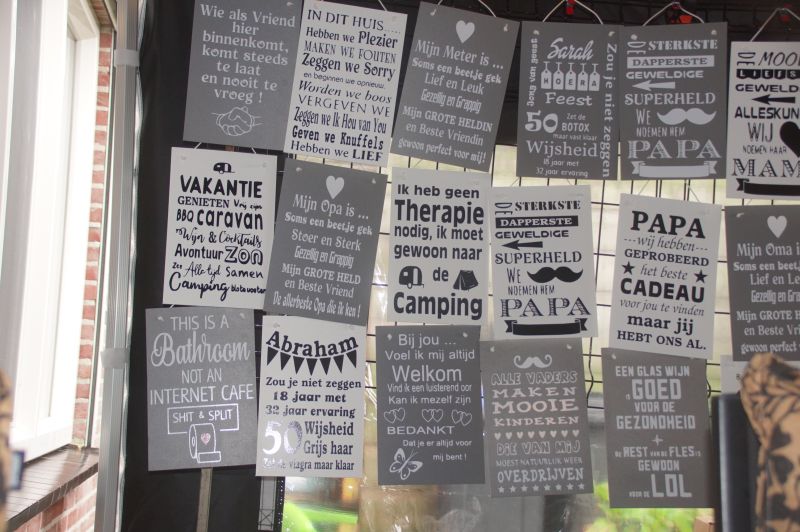 Wie als Vriend
hier
binnenkomt,
komt steeds
te laat
en nooit te
vroeg !
IN DIT HUIS....
Hebben we Plezier
MAKEN WE FOUTEN
Zeggen we Sorry
en beginnen we opnieuw.
Worden we boos
VERGEVEN WE
Zeggen we Ik Hou van You
Geven we Knuffels
Hebben we LIEF
Mijn Meter is ...
Soms een beetje gek
Lief en Leuk
Gezellig en Grappig
Mijn GROTE HELDIN
en Beste Vriendin
gewoon perfect voor mij!
Sarah
HOERA
Feest
50 Zet de
BOTOX
maar vast klaar
Wijsheid
18 jaar met
32 jaar ervaring
Zou je niet zeggen
DE STERKSTE
DAPPERSTE
GEWELDIGE
SUPERHELD
WE
NOEMEN HEM
PAPA
DE MOOI
LIEFS
GEWELDI
ALLESKUN
WIJ
NOEMEN HAAR
MAM
VAKANTIE
GENIETEN Vrij zijn
BBQ caravan
Wijn & Cocktails
Avontuur ZON
Zee Altijd Samen
Camping
Mijn Opa is ...
Soms een beetje gek
Stoer en Sterk
Gezellig en Grappig
Mijn GROTE HELD
en Beste Vriend
De allerbeste Opa die ik ken !
Ik heb geen
Therapie
nodig, ik moet
gewoon naar
de
Camping
DE STERKSTE
DAPPERSTE
GEWELDIGE
SUPERHELD
WE
NOEMEN HEM
PAPA
PAPA
wij hebben
GEPROBEERD
het beste
CADEAU
voor jou te vinden
maar jij
HEBT ONS AL.
Mijn Oma is
Soms een beetje
Lief en L
Gezellig en G
Mijn GROTE H
en Beste Vri
gewoon perfect v
THIS IS A
Bathroom
NOT AN
INTERNET CAFE
SHIT & SPLIT
Abraham
Zou je niet zeggen
18 jaar met
32 jaar ervaring
50 Wijsheid
Grijs haar
de viagra maar klaar
Bij jou ...
Voel ik mij altijd
Welkom
Vind ik een luisterend oor
Kan ik mezelf zijn
BEDANKT
Dat je er altijd voor
mij bent !
ALLE VADERS
MAKEN
MOOIE
KINDEREN
DIE VAN MIJ
MOEST NATUURLIJK WEER
OVERDRIJVEN
EEN GLAS WIJN
is GOED
VOOR DE
GEZONDHEID
+
DE REST VAN DE FLES IS
GEWOON
VOOR DE LOL